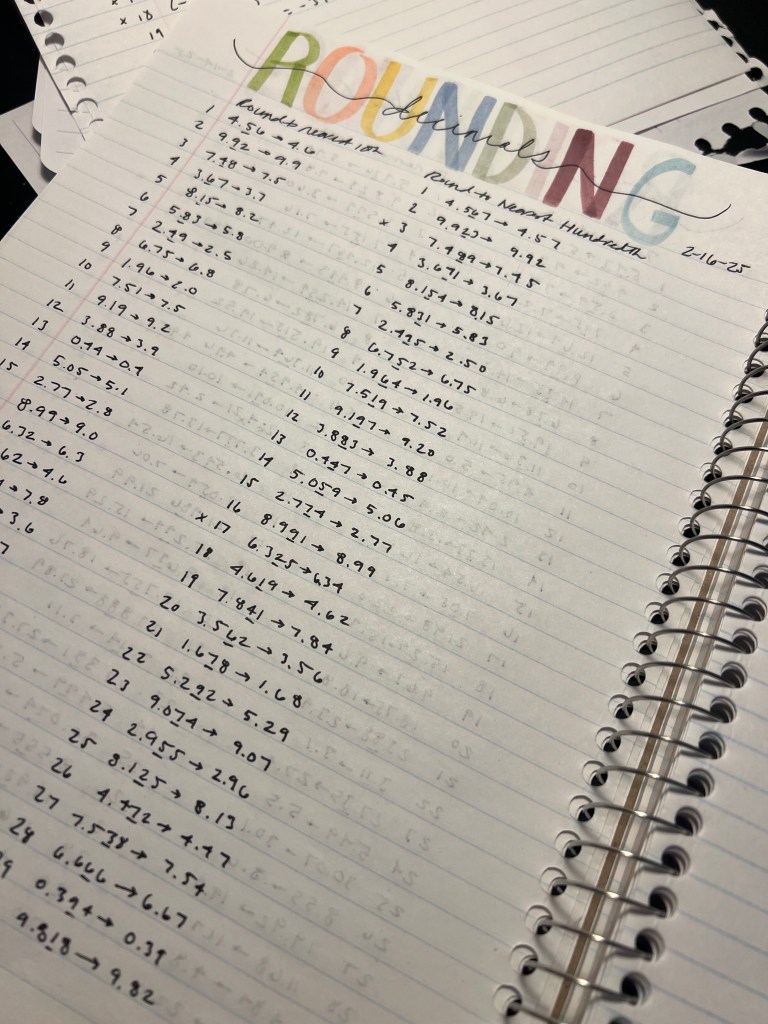 x 18
19
ROUNDING
decimals
2-16-25
Round to nearest 10th
1 4.56→4.6
2 9.92→9.9
3 7.48→7.5
4 3.67→3.7
5 8.15→8.2
6 5.83→5.8
7 2.49→2.5
8 6.75→6.8
9 1.96→2.0
10 7.51→7.5
11 9.19→9.2
12 3.88→3.9
13 0.44→0.4
14 5.05→5.1
15 2.77→2.8
8.99→9.0
6.32→6.3
62→4.6
→7.8
→3.6
7
Round to Nearest Hundredth
1 4.567→4.57
2 9.923→9.92
x 3 7.489→7.45
4 3.671→3.67
5 8.154→8.15
6 5.831→5.83
7 2.495→2.50
8 6.752→6.75
9 1.964→1.96
10 7.519→7.52
11 9.197→9.20
12 3.883→3.88
13 0.447→0.45
14 5.059→5.06
15 2.774→2.77
16 8.991→8.99
x 17 6.325→6.34
18 4.619→4.62
19 7.841→7.84
20 3.562→3.56
21 1.678→1.68
22 5.292→5.29
23 9.074→9.07
24 2.955→2.96
25 8.125→8.13
26 4.472→4.47
27 7.538→7.54
28 6.666→6.67
9 0.394→0.39
9.818→9.82